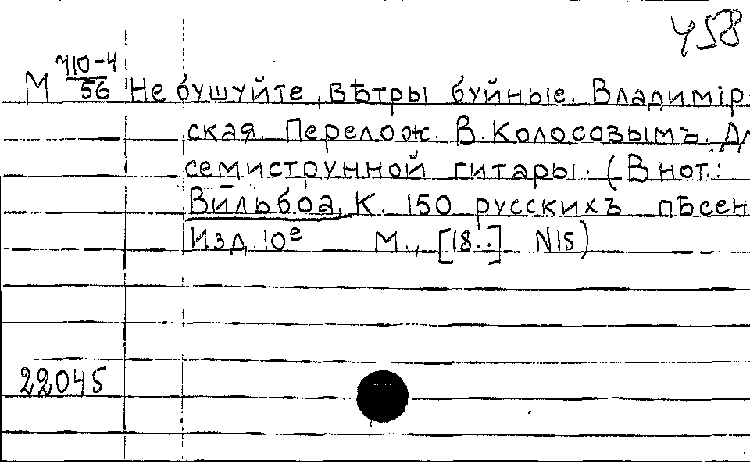 458
М 710-4/56 Не бушуйте, вѣтры буйные. Владимір-
ская. Перелож. В. Колосовымъ. Дл
семиструнной гитары. (В нот.:
Вильбоа, К. 150 русскихъ пѣсен
Изд. 10е М., [18..] N15)
22045